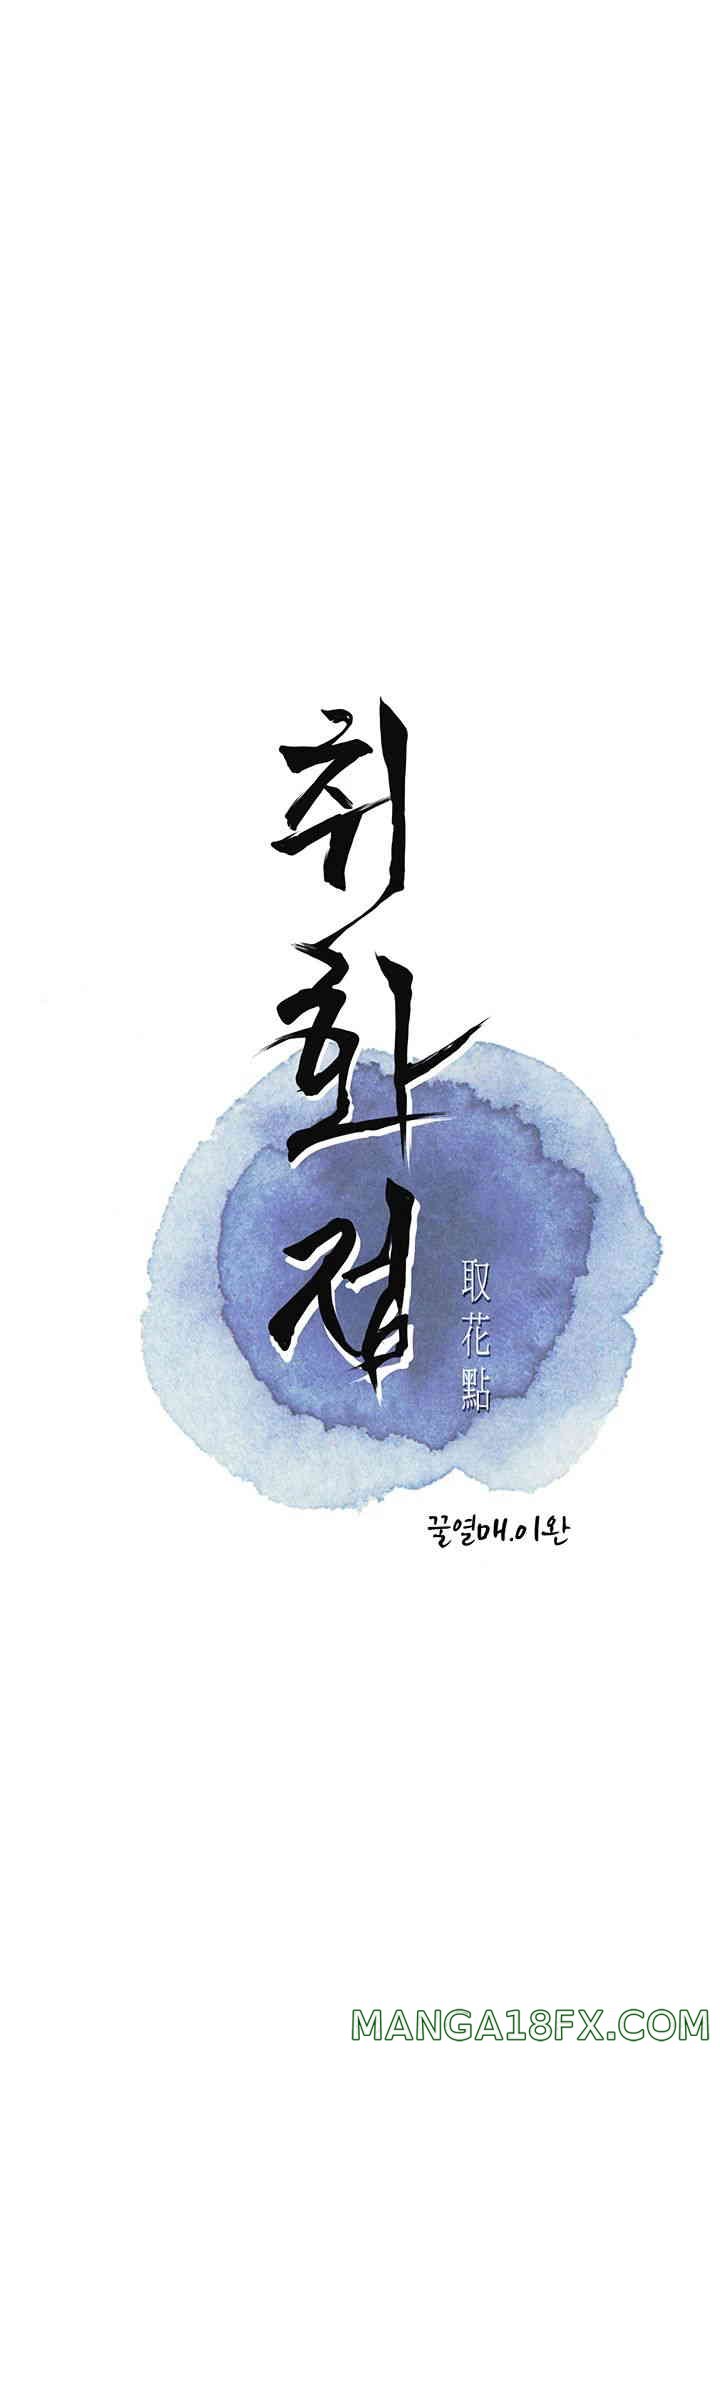 취화점
取花點
꿀열매.이완
MANGA18FX.COM